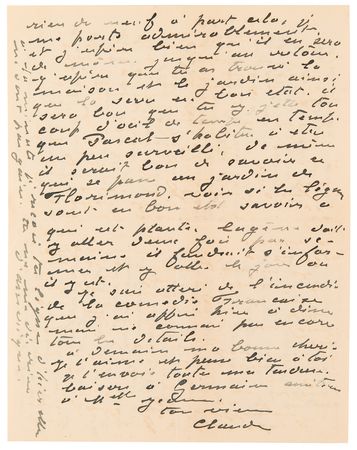 rien de neuf à part cela, je
me porte admirablement
et j'espère bien qu'il en sera
de même jusqu'au retour.
j'espère que tu as trouvé la
maison et le jardin ainsi
que la serre en bon état. il
sera bon que tu y jette ton
coup d'œil de temps en temps
que Pascal s'habitue à être
un peu surveillé. de même
il serait bon de savoir ce
qui se passe au jardin de
Florimond. voir si les légumes
sont en bon état savoir
qui est planté. Eugène doit
y aller deux fois par se-
maine il faudrait s'infor-
mer et y aller le jour où
il y est.
Je suis atterré de l'incendie
de la comédie Française
que j'ai appris hier à diner
mais ne connais pas encore
tous les détails.
à demain ma bonne cherie
je t'aime et pense bien à toi
je t'envoie toute ma tendresse
baisers à Germaine amitiés
à Melle
ton vieux
Claude